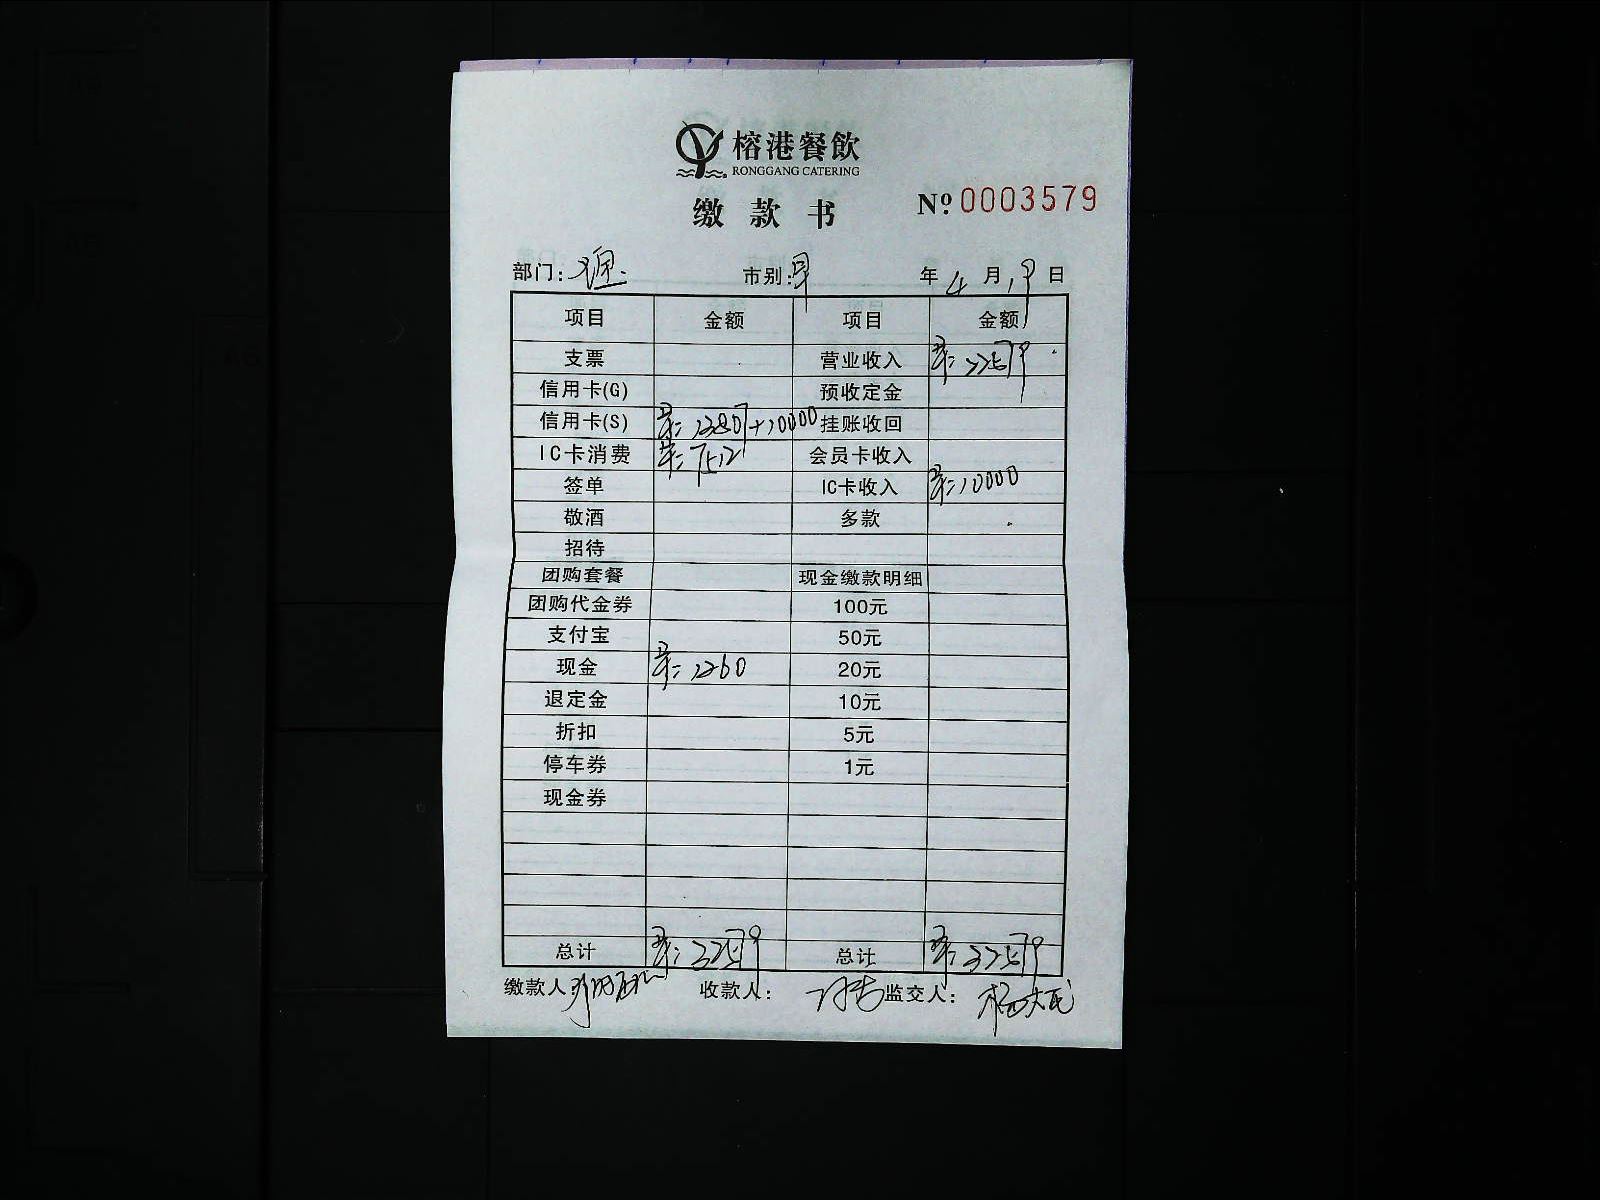 榕港餐飲
RONGGANG CATERING
缴款书 Nº 0003579
部门: 市别:早 年 4 月 19 日
项目 金额 项目 金额
支票 营业收入 早:22579
信用卡(G) 预收定金
信用卡(S) 早:13807+10000 挂账收回
IC卡消费 早:7512 会员卡收入
签单 IC卡收入 早:10000
敬酒 多款
招待
团购套餐 现金缴款明细
团购代金券 100元
支付宝 50元
现金 早:1260 20元
退定金 10元
折扣 5元
停车券 1元
现金券
总计 早:32579 总计 早:32579
缴款人 收款人: 监交人: